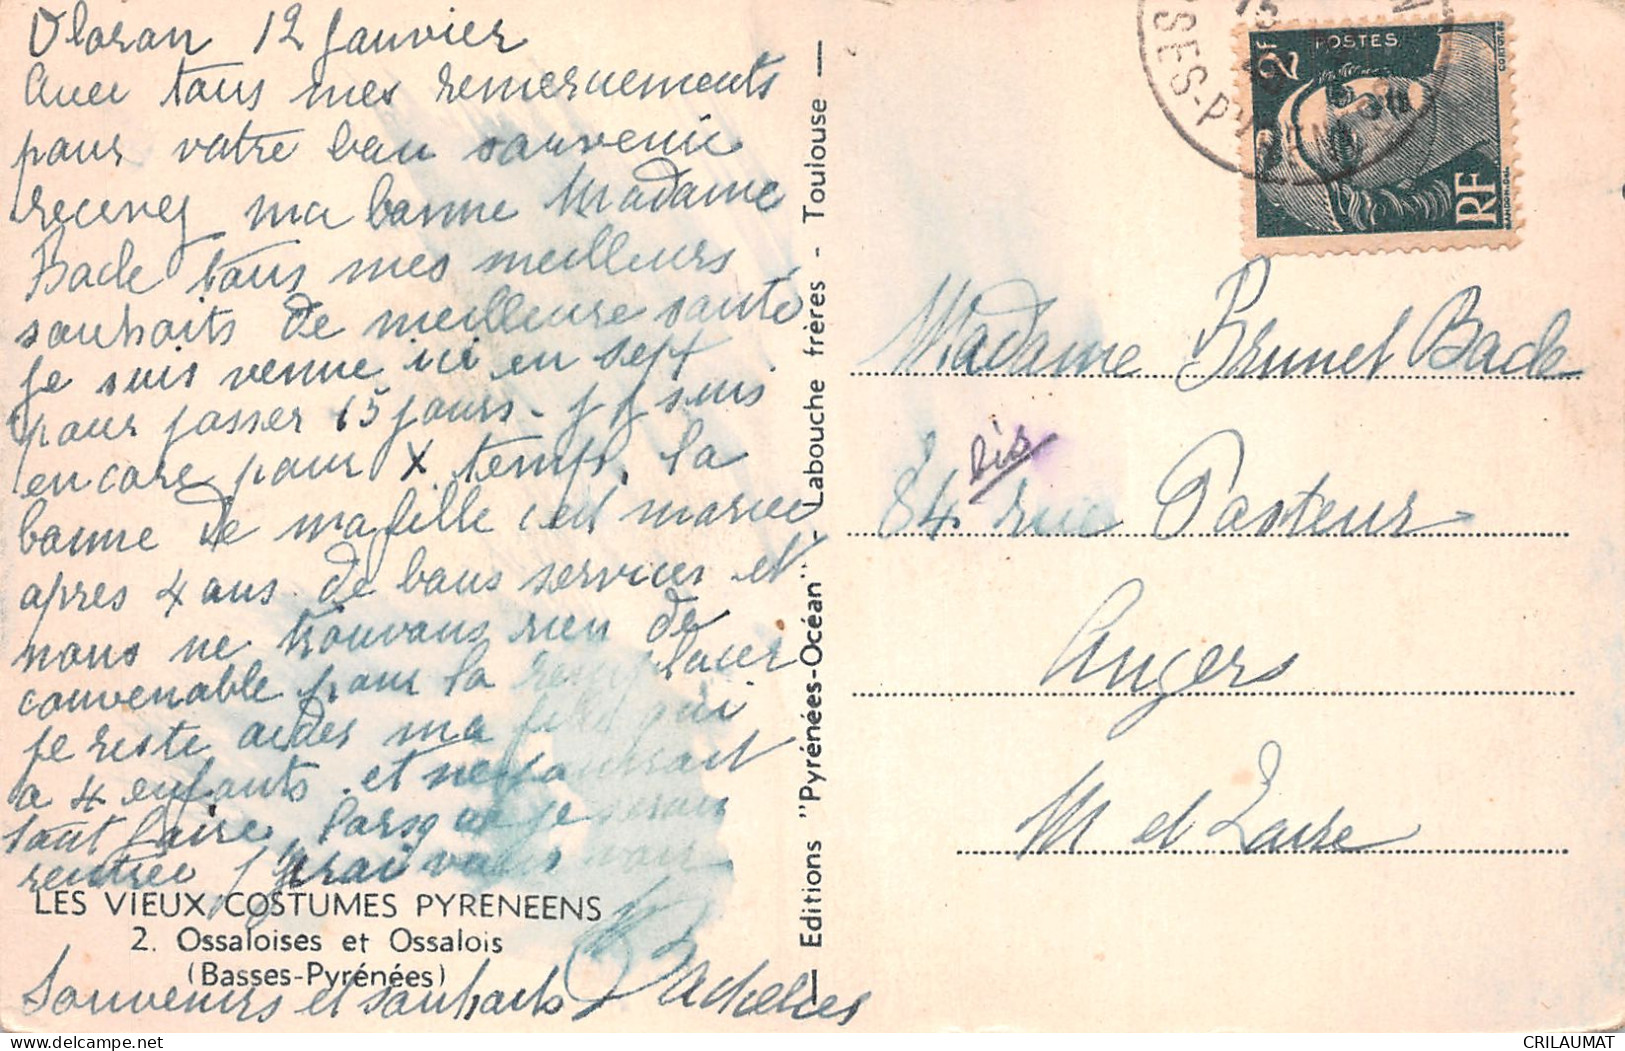 Oloron 12 Janvier
Avec tous mes remerciements
pour votre bon souvenir
recevez ma bonne Madame
Bade tous mes meilleurs
souhaits de meilleure santé
je suis venue ici en sept
pour passer 15 jours - j'y suis
encore pour X temps, la
bonne de ma fille c'est mariée
après 4 ans de bons services et
nous ne trouvons rien de
convenable pour la remplacer
je reste aider ma fille qui
a 4 enfants et ne pourrait
tout faire, lorsque je serai
rentrée j'irai vous voir
LES VIEUX COSTUMES PYRENEENS
2. Ossaloises et Ossalois
(Basses-Pyrénées)
Souvenirs et souhaits
Editions "Pyrénées-Océan" - Labouche frères - Toulouse
POSTES
2F
RF
SES-PYREN
Madame Brunet Bade
84 bis rue Pasteur
Angers
M et Loire
CRILAUMAT